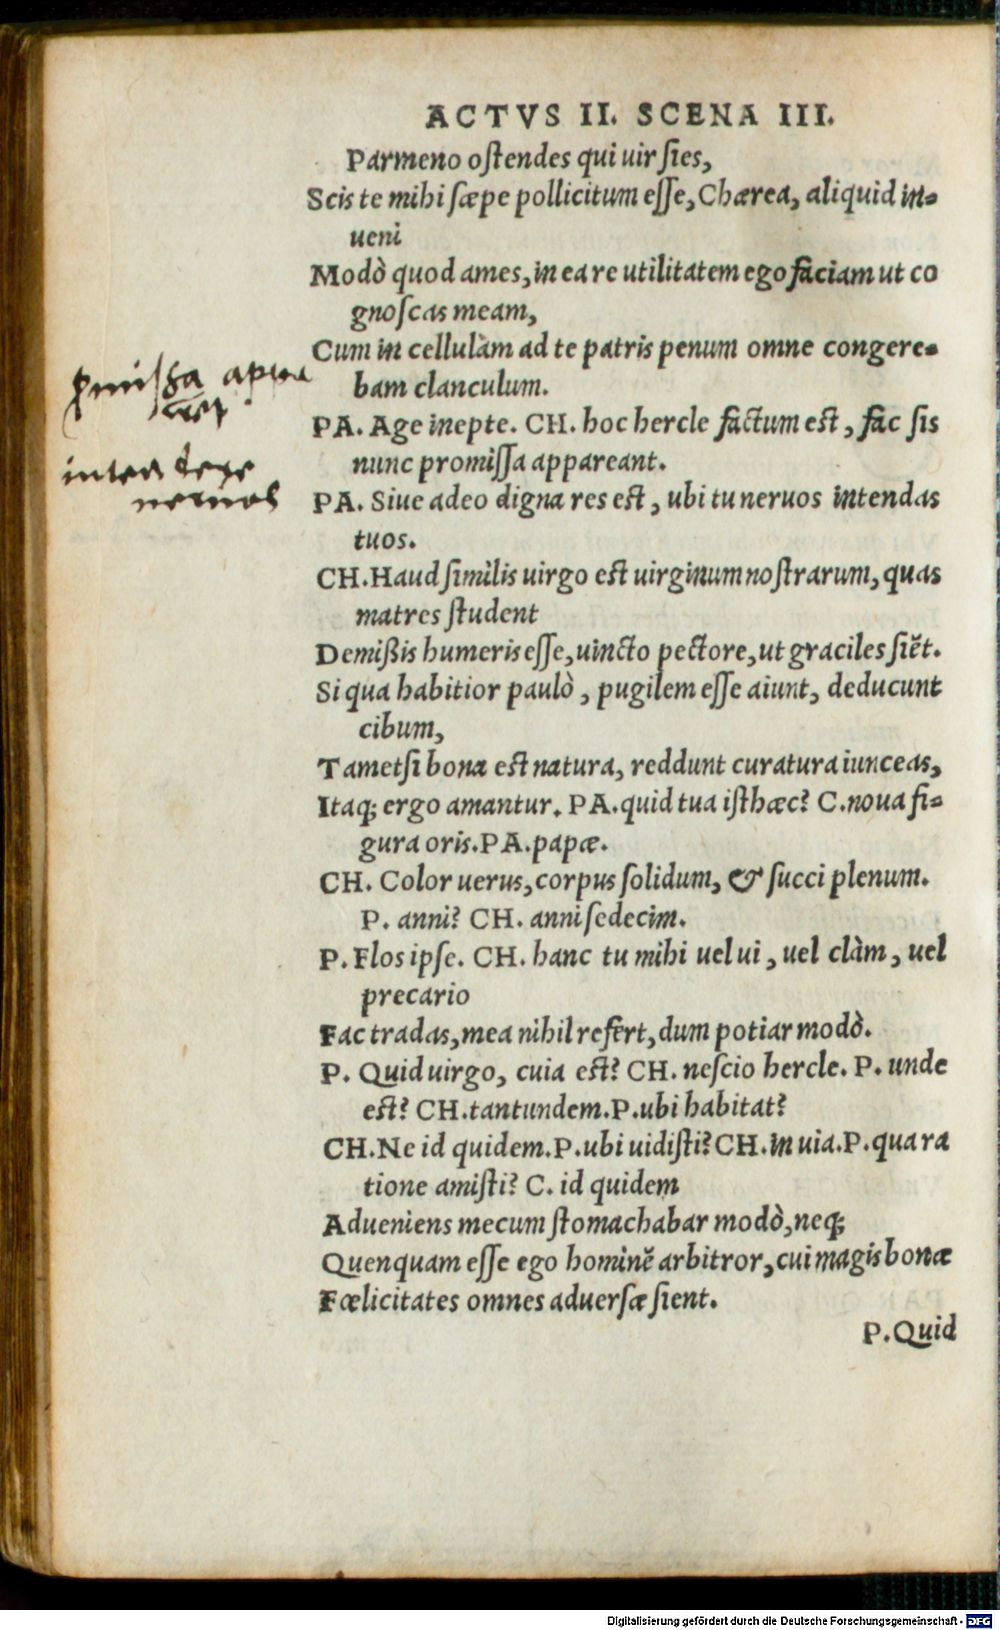 ACTVS II. SCENA III.
Parmeno oſtendes qui uir ſies,
Scis te mihi ſæpe pollicitum eſſe, Chærea, aliquid in-
ueni
Modò quod ames, in ea re utilitatem ego faciam ut co
gnoſcas meam,
Cum in cellulàm ad te patris penum omne congere-
bam clanculum.
PA. Age inepte. CH. hoc hercle factum est, fac ſis
nunc promiſſa appareant.
PA. Siue adeo digna res est, ubi tu neruos intendas
tuos.
CH. Haud ſimilis uirgo est uirginum noſtrarum, quas
matres ſtudent
Demißis humeris eſſe, uincto pectore, ut graciles ſiẽt.
Si qua habitior paulò, pugilem eſſe aiunt, deducunt
cibum,
Tametſi bona est natura, reddunt curatura iunceas,
Itaq; ergo amantur. PA. quid tua iſthæc? C. noua fi-
gura oris. PA. papæ.
CH. Color uerus, corpus ſolidum, & ſucci plenum.
P. anni? CH. anni ſedecim.
P. Flos ipſe. CH. hanc tu mihi uel ui, uel clàm, uel
precario
Fac tradas, mea nihil refert, dum potiar modò.
P. Quid uirgo, cuia est? CH. neſcio hercle. P. unde
est? CH. tantundem. P. ubi habitat?
CH. Ne id quidem. P. ubi uidiſti? CH. in uia. P. qua ra
tione amiſti? C. id quidem
Adueniens mecum ſtomachabar modò, neq;
Quenquam eſſe ego hominẽ arbitror, cui magis bonæ
Fœlicitates omnes aduerſæ ſient.
P. Quid
neruos
Digitalisierung gefördert durch die Deutsche Forschungsgemeinschaft - DFG